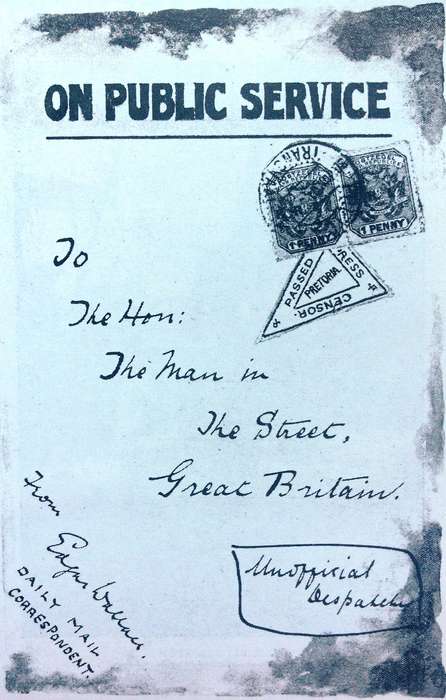 ON PUBLIC SERVICE
TRANS
1 PENNY
1 PENNY
PASSED
PRESS
CENSOR
PRETORIA
To
The Hon:
The Man in
The Street,
Great Britain.
From
Edgar Wallace.
DAILY MAIL
CORRESPONDENT.
Unofficial
Despatches